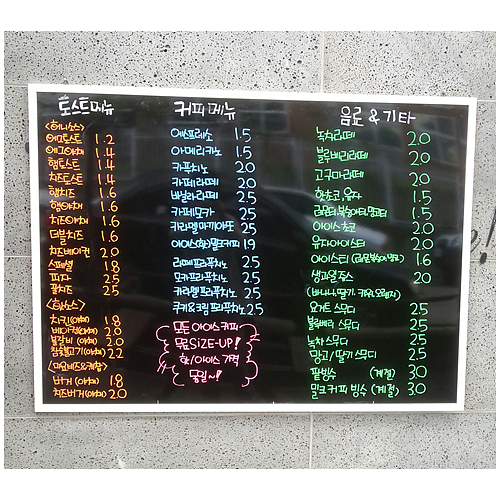 토스트메뉴
<허니소스>
에그토스트 1.2
에그야채 1.4
햄토스트 1.4
치즈토스트 1.4
햄치즈 1.6
햄야채 1.6
치즈야채 1.6
더블치즈 1.6
치즈베이컨 2.0
스페셜 1.8
피자 2.5
콜치즈 2.5
<핫소스>
치킨(야채) 1.8
베이컨(야채) 2.0
불갈비(야채) 2.0
참숯불고기(야채) 2.2
<마요네즈&케찹>
버거(야채) 1.8
치즈버거(야채) 2.0
커피메뉴
에스프레소 1.5
아메리카노 1.5
카푸치노 2.0
카페라떼 2.0
바닐라라떼 2.5
카페모카 2.5
카라멜마끼아또 2.5
아이스(핫)밀크커피 1.9
커피프라푸치노 2.5
모카프라푸치노 2.5
카라멜프라푸치노 2.5
쿠키&크림프라푸치노 2.5
모든 아이스 커피
무료 SIZE-UP!
핫/아이스 가격
동일~!
음료 & 기타
녹차라떼 2.0
블루베리라떼 2.0
고구마라떼 2.0
핫초코, 유자 1.5
1.5
아이스초코 2.0
유자아이스티 2.0
아이스티 1.6
생과일주스 2.0
(바나나, 딸기, 키위, 오렌지)
요거트 스무디 2.5
블루베리 스무디 2.5
녹차 스무디 2.5
망고/딸기 스무디 2.5
팥빙수 (계절) 3.0
밀크커피 빙수 (계절) 3.0